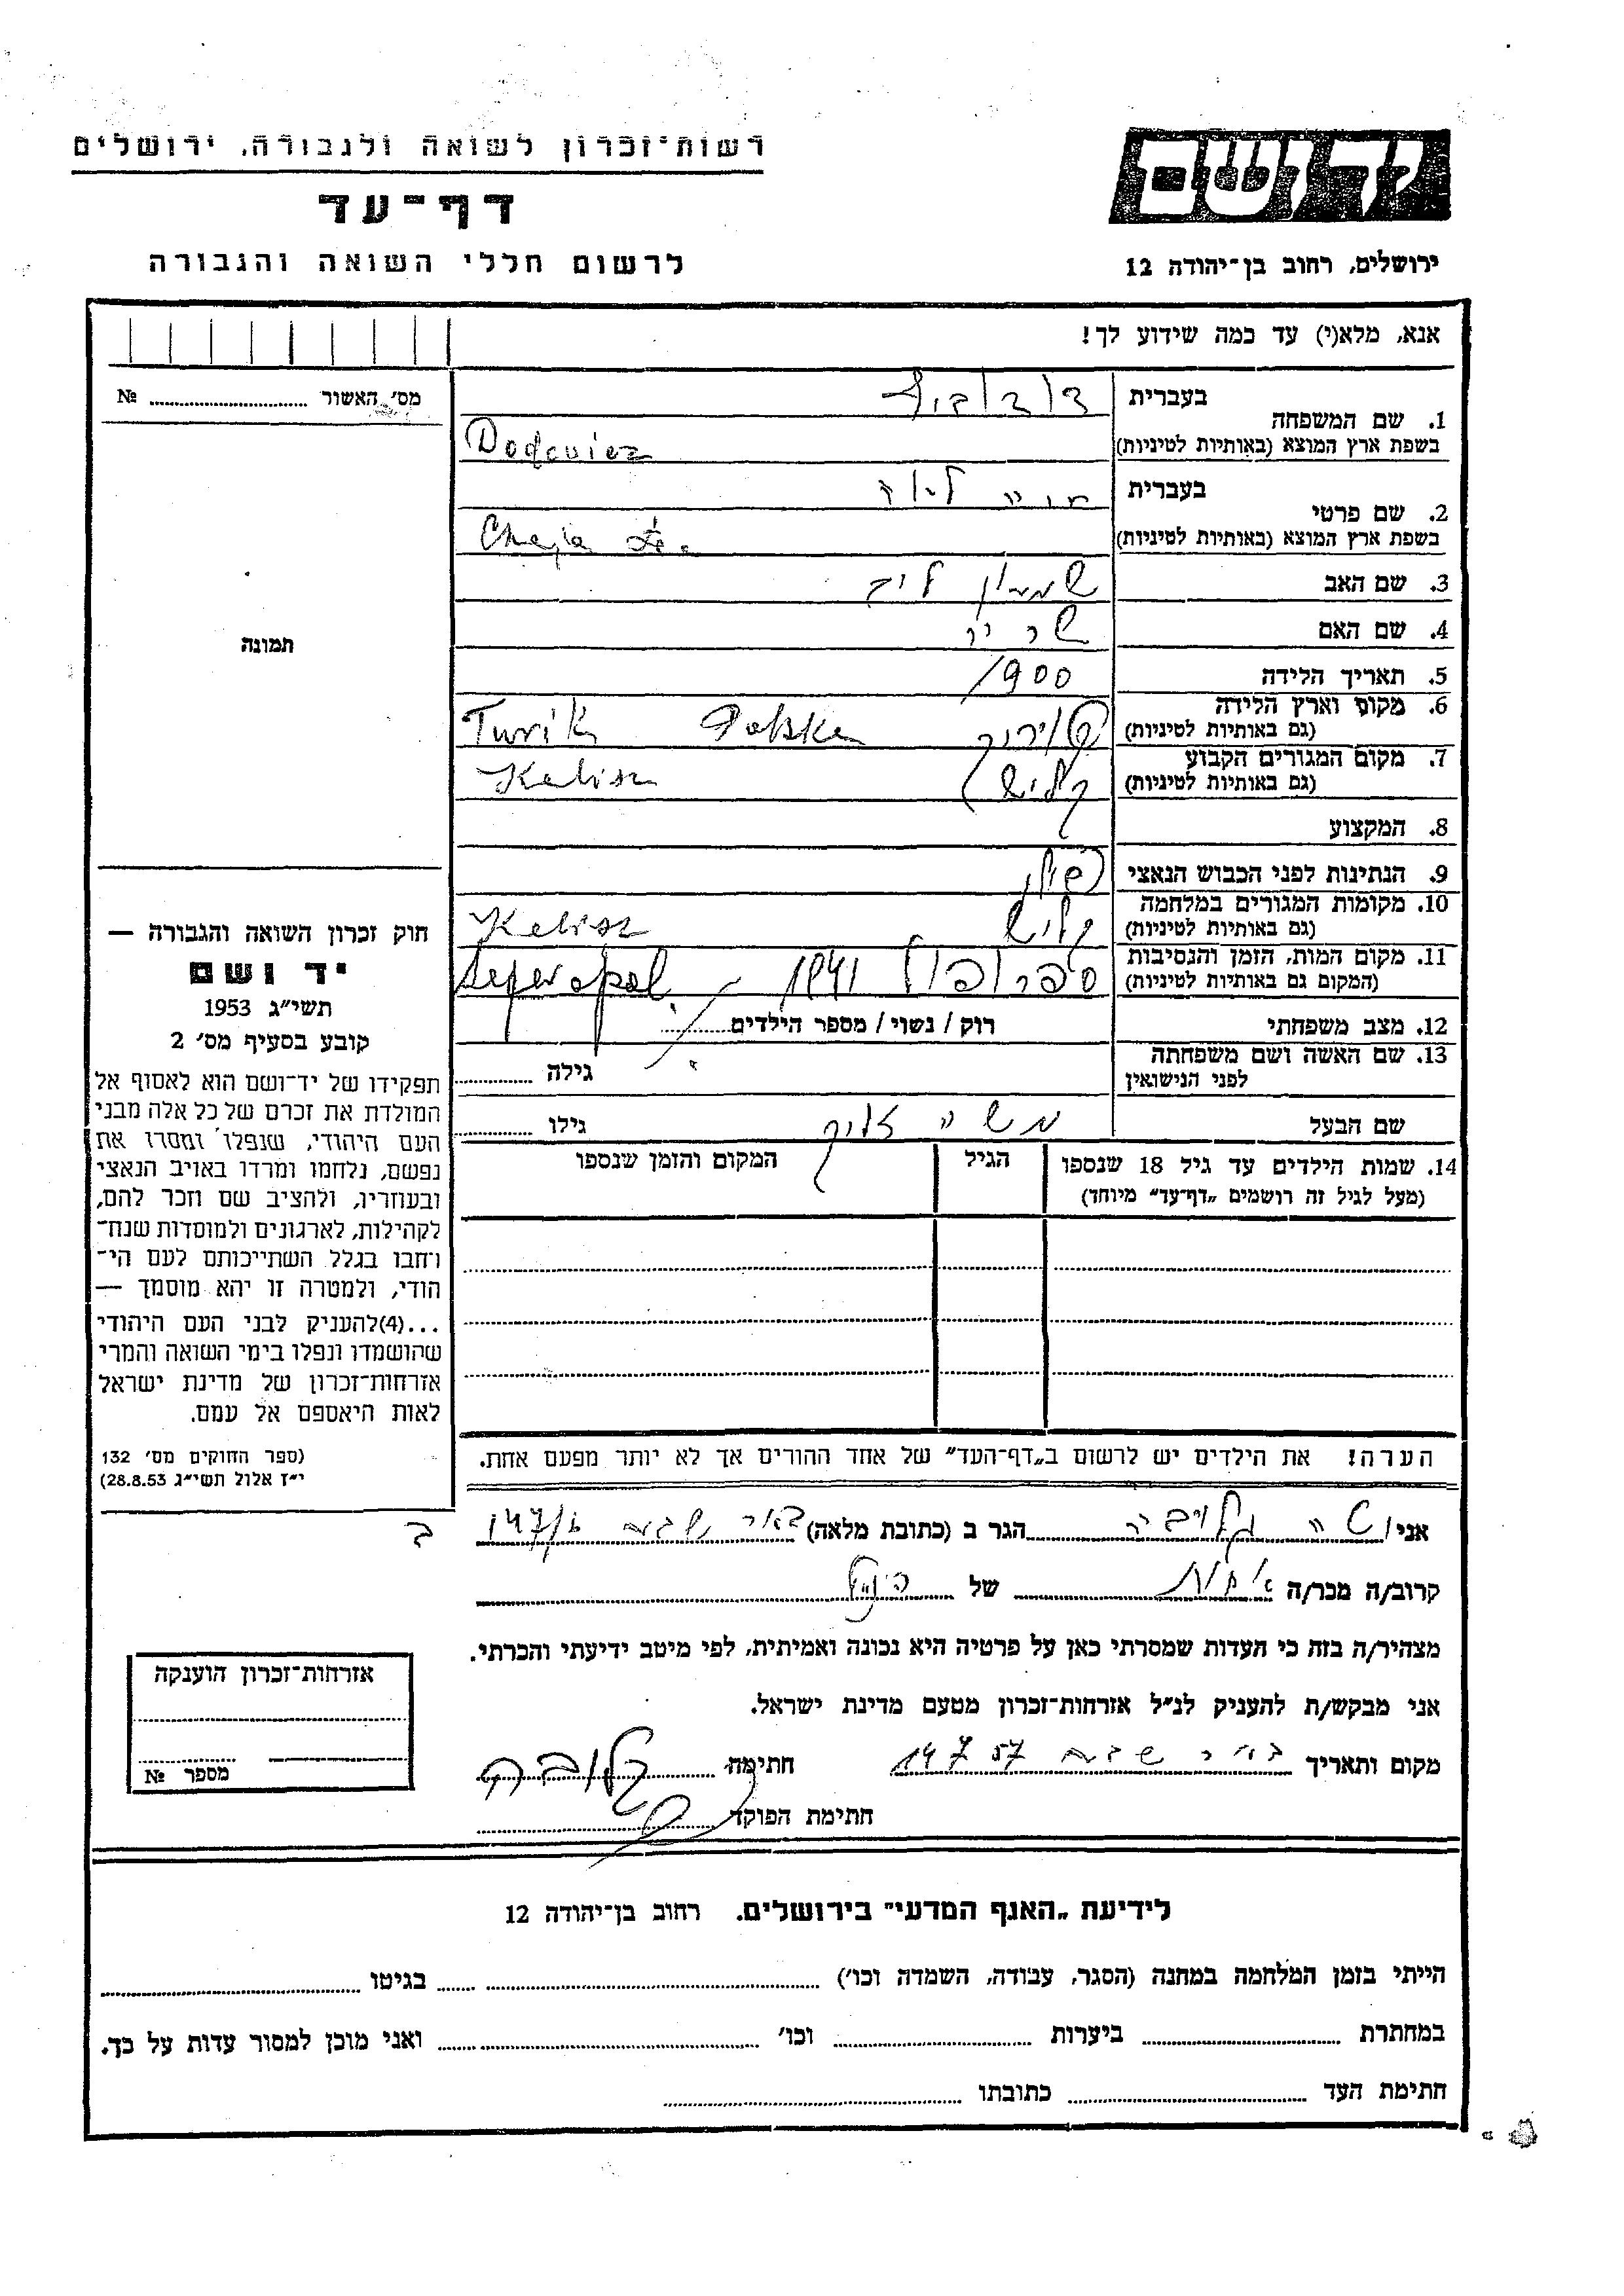 רשות־זכרון לשואה ולגבורה, ירושלים
דף־עד
לרשום חללי השואה והגבורה
יד ושם
ירושלים, רחוב בן־יהודה 12
אנא, מלא(י) עד כמה שידוע לך!
מס׳ האשור ........ №
תמונה
חוק זכרון השואה והגבורה —
יד ושם
תשי״ג 1953
קובע בסעיף מס׳ 2
תפקידו של יד־ושם הוא לאסוף אל
המולדת את זכרם של כל אלה מבני
העם היהודי, שנפלו ומסרו את
נפשם, נלחמו ומרדו באויב הנאצי
ובעוזריו, ולהציב שם וזכר להם,
לקהילות, לארגונים ולמוסדות שנח־
רחבו בגלל השתייכותם לעם הי־
הודי, ולמטרה זו יהא מוסמך —
...(4)להעניק לבני העם היהודי
שהושמדו ונפלו בימי השואה והמרי
אזרחות־זכרון של מדינת ישראל
לאות היאספם אל עמם.
(ספר החוקים מס׳ 132
י״ז אלול תשי״ג 28.8.53)
1. שם המשפחה
בעברית
בשפת ארץ המוצא (באותיות לטיניות)
2. שם פרטי
בעברית חיה לאה
בשפת ארץ המוצא (באותיות לטיניות) Chaja
3. שם האב שמעון
4. שם האם
5. תאריך הלידה 1900
6. מקום וארץ הלידה
(גם באותיות לטיניות) Turik Polska
7. מקום המגורים הקבוע
(גם באותיות לטיניות) קליש Kalisz
8. המקצוע
9. הנתינות לפני הכבוש הנאצי פולני
10. מקומות המגורים במלחמה
(גם באותיות לטיניות) קליש Kalisz
11. מקום המות, הזמן והנסיבות
(המקום גם באותיות לטיניות) 1941
12. מצב משפחתי רוק / נשוי / מספר הילדים
13. שם האשה ושם משפחתה
לפני הנישואין גילה
שם הבעל משה גילו
14. שמות הילדים עד גיל 18 שנספו הגיל המקום והזמן שנספו
(מעל לגיל זה רושמים „דף־עד״ מיוחד)
הערה! את הילדים יש לרשום ב„דף־העד״ של אחד ההורים אך לא יותר מפעם אחת.
אני הגר ב (כתובת מלאה) באר שבע
קרוב/ה מכר/ה אחות של הנ״ל
מצהיר/ה בזה כי העדות שמסרתי כאן על פרטיה היא נכונה ואמיתית, לפי מיטב ידיעתי והכרתי.
אני מבקש/ת להעניק לנ״ל אזרחות־זכרון מטעם מדינת ישראל.
מקום ותאריך באר שבע חתימה
חתימת הפוקד
אזרחות־זכרון הוענקה
מספר №
לידיעת „האגף המדעי״ בירושלים. רחוב בן־יהודה 12
הייתי בזמן המלחמה במחנה (הסגר, עבודה, השמדה וכו׳) בגיטו
במחתרת ביערות וכו׳ ואני מוכן למסור עדות על כך.
חתימת העד כתובתו